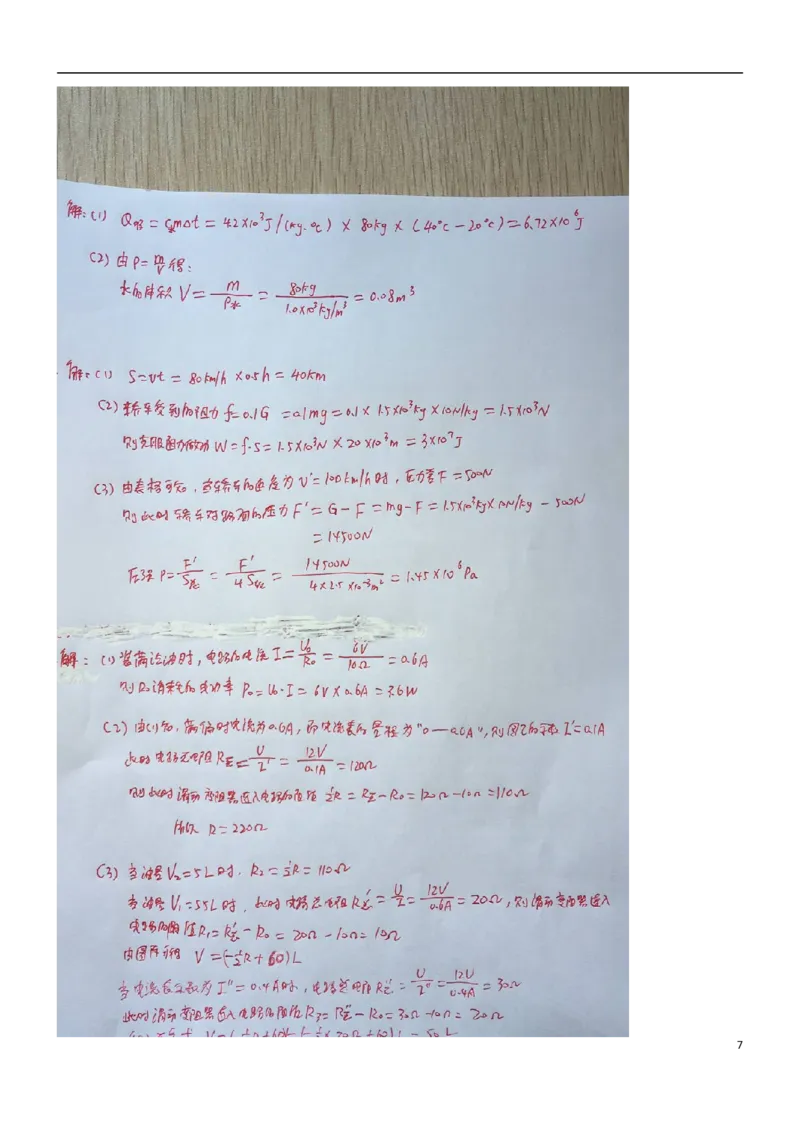 解:(1) Q吸 = c水m△t = 4.2×10³J/(kg·℃) × 80kg × (40℃ - 20℃) = 6.72×10⁶J
(2) 由ρ= m/V 得:
水的体积 V = m/ρ水 = 80kg/1.0×10³kg/m³ = 0.08m³
解:(1) S=vt = 80km/h ×0.5h = 40km
(2) 轿车受到的阻力 f=0.1G =0.1mg =0.1× 1.5×10³kg ×10N/kg = 1.5×10³N
则克服阻力做功 W=f·S= 1.5×10³N × 20×10³m = 3×10⁷J
(3) 由表格可知,当轿车的速度为 v'=100km/h时,压力差F=500N
则此时轿车对路面的压力 F'=G-F = mg-F = 1.5×10³kg×10N/kg - 500N
= 14500N
压强 P= F'/S总 = F'/4S = 14500N/4×2.5×10⁻³m² = 1.45×10⁶Pa
解:(1) 当满油时,电路的电流 I= U₀/R₀ = 6V/10Ω = 0.6A
则R₀消耗的电功率 P₀=U₀·I= 6V×0.6A =3.6W
(2) 由(1)知,满偏时电流为0.6A,即电流表的量程为"0—0.6A",则图乙的示数 I'=0.1A
此时电路总电阻R总= U/I' = 12V/0.1A =120Ω
则此时滑动变阻器连入电路的阻值 ½R = R总-R₀=120Ω-10Ω=110Ω
所以 R=220Ω
(3) 当油量V₂=5L时,R₂=½R=110Ω
当油量V₁=55L时,此时电路总电阻R总'= U/I = 12V/0.6A = 20Ω,则滑动变阻器连入
电路的阻值R₁=R总'-R₀=20Ω-10Ω=10Ω
由图所得 V=(-½R+60)L
当电流表示数为I"=0.4A时,电路总电阻R总"= U/I" = 12V/0.4A = 30Ω
此时滑动变阻器连入电路的阻值R₃=R总"-R₀=30Ω-10Ω= 20Ω
7